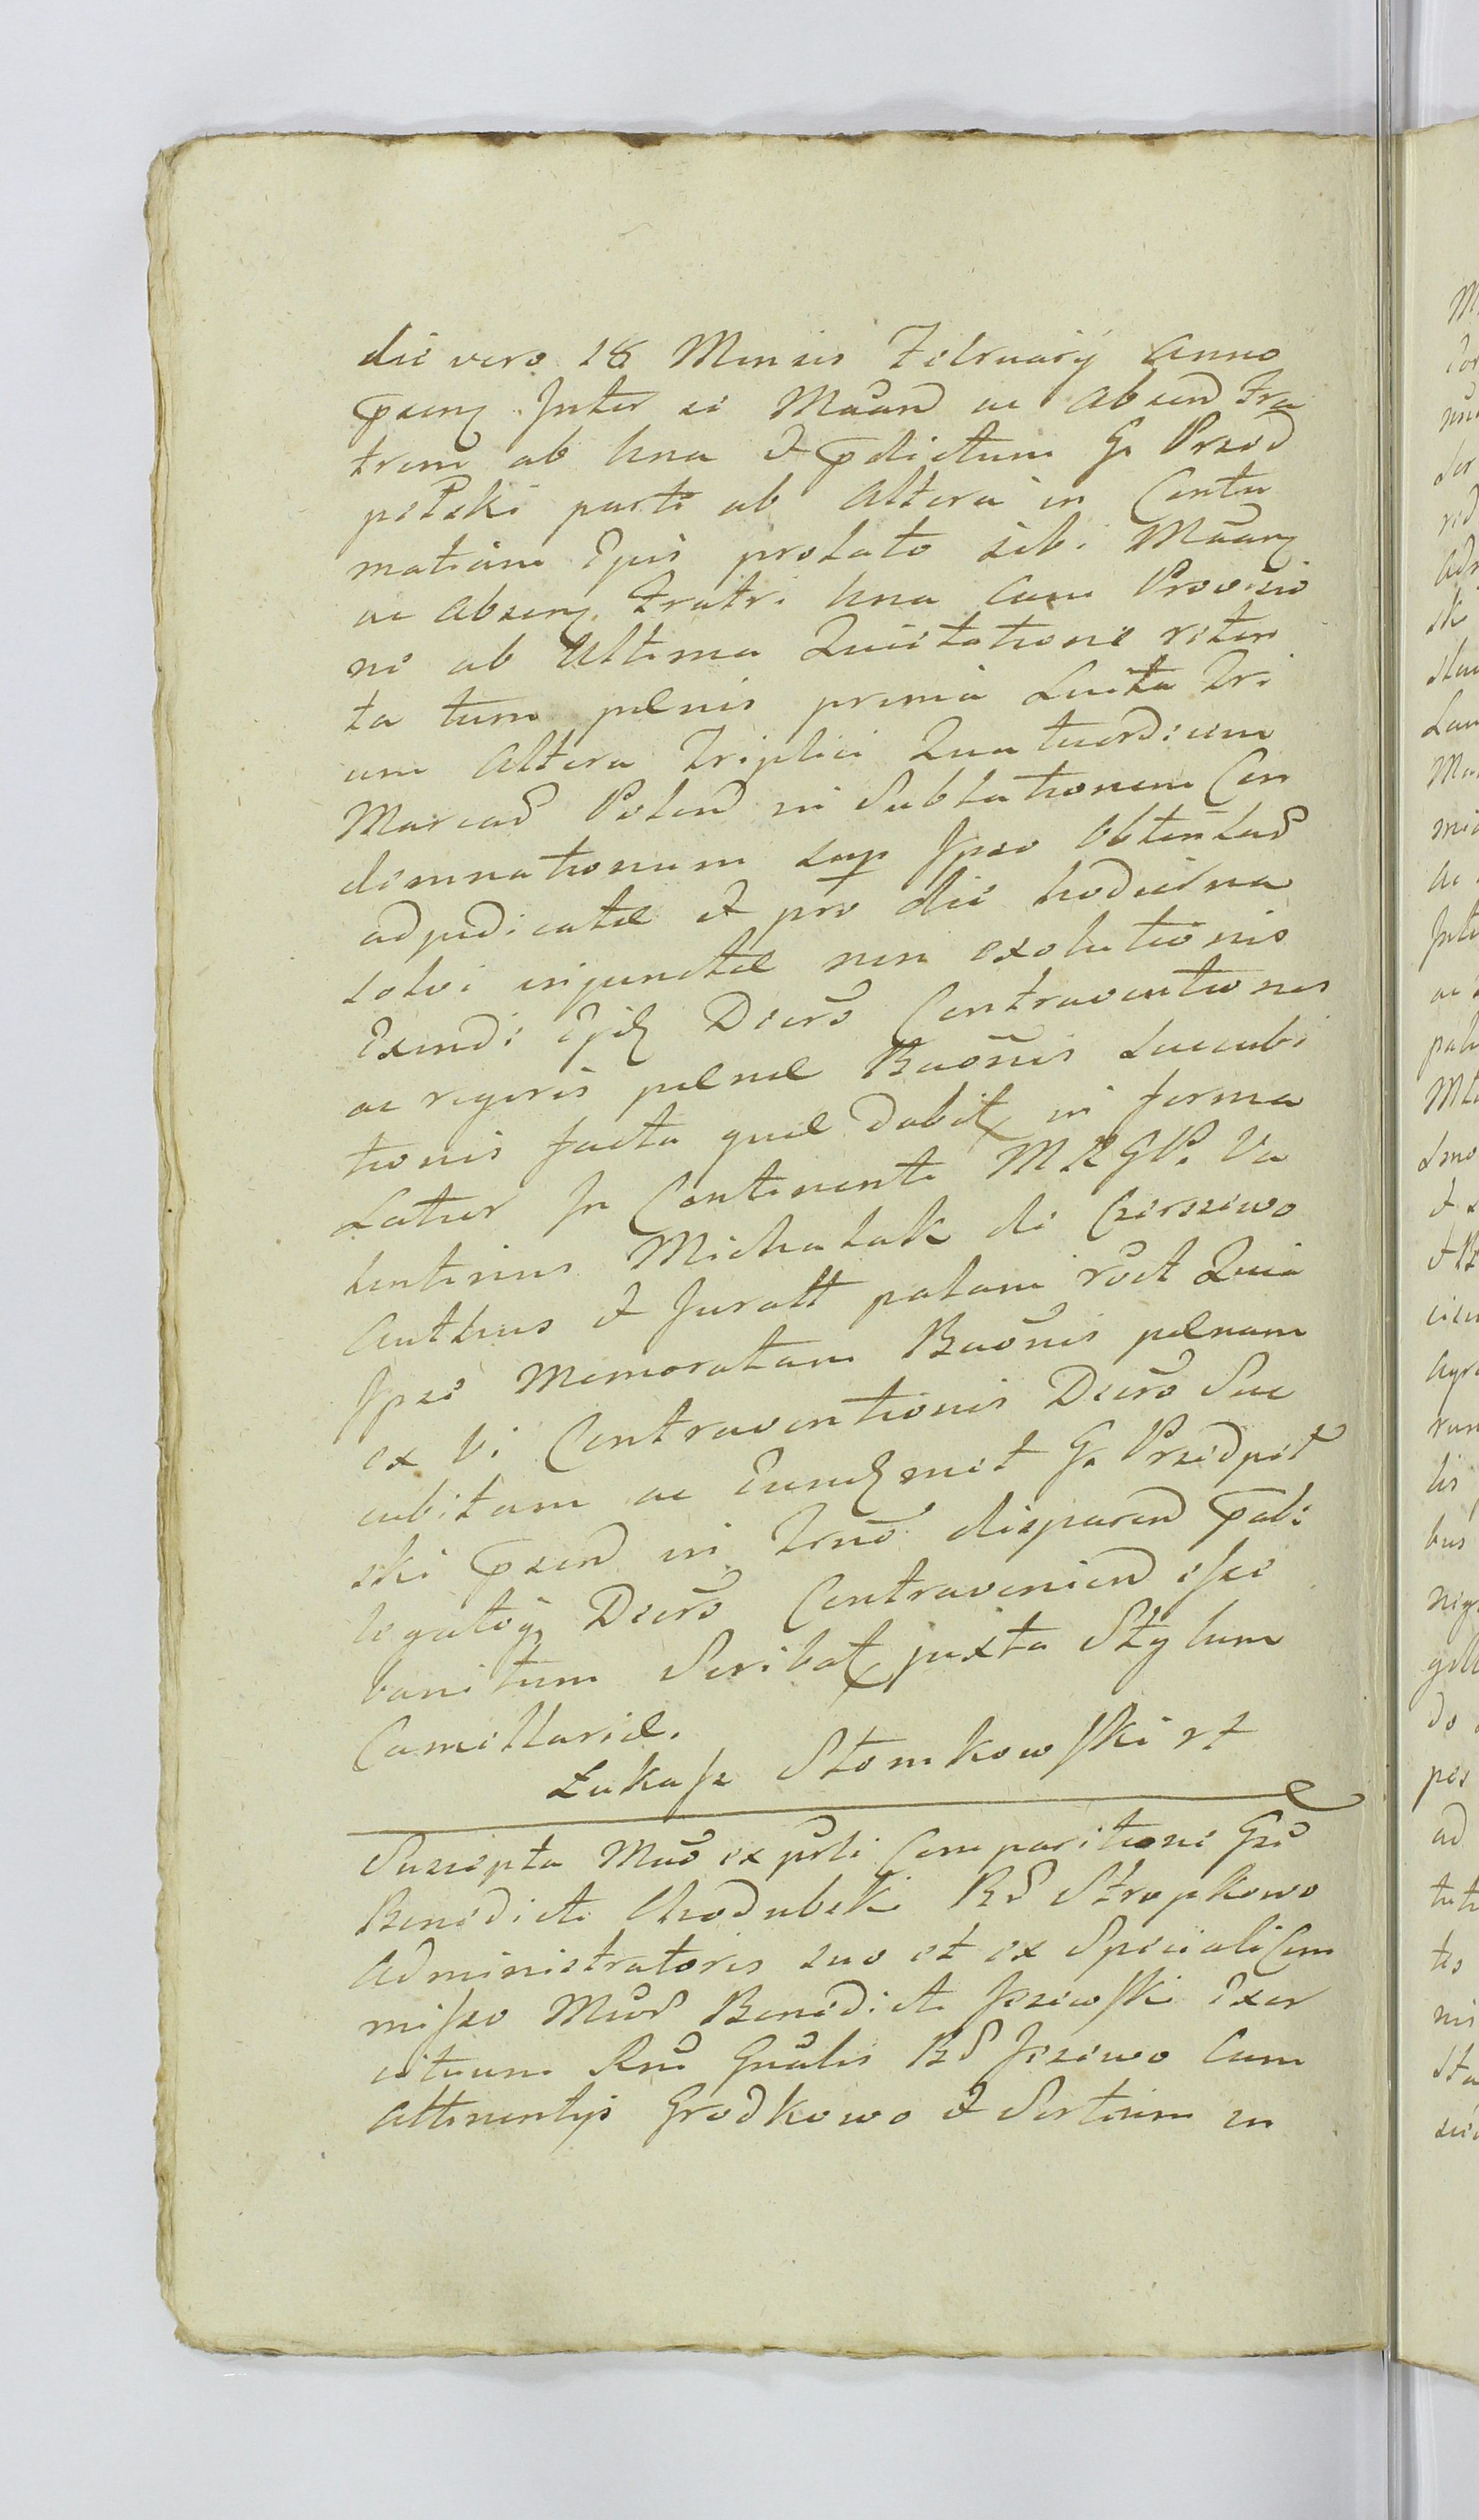 die vero 18 Mensis February Anno
pseng Inter se Maand ac Absend Fra
trem ab Una et pdictum G. Przed
petski parte ab Altera in Contu
matiam Ejus prolato sibi Maang
ac Abseng Fratri Una Cum Provisio
ne ab Ultima Quietatione reten
ta tum pœnis prima Luita Tri
um Altera Triplici Quatuordecim
Marcas Polond in Sublationem Con
demnationum sup Ipso Obtentas
adjudicatæ et pro die hodierna
solvi injunctæ non exolutionis
Exindi Ejusd Decro Contraventionis
ac rigoris pœnæ Baonis Succubi
tionis facta quæ dabit in forma
Latur In Continenti MRGP. Va
lentinus Michalak de Czerszewo
Authus et Juratt palam rōct Quia
Ipse Memoratam Baonis pœnam
ex Vi Contraventionis Decro Suc
cubitam ac Eundemet G. Przedpet
ski psend in Trno disparend pabi
legatog Decro Contraveniend esse
banitum Scribat juxta Stylum
Cancellariæ.
Łukasz Słomkowski rt
Suscepta Muo ex psli Comparitione Gsi
Benedicti Chodubski BD Stropkowo
Administratoris suo et ex Speciali Com
misso Mcor Benedicti Jezewski Exer
cituum Rni Gnalis BD Jezewo Cum
Attinentijs Grodkowo et Sortium in